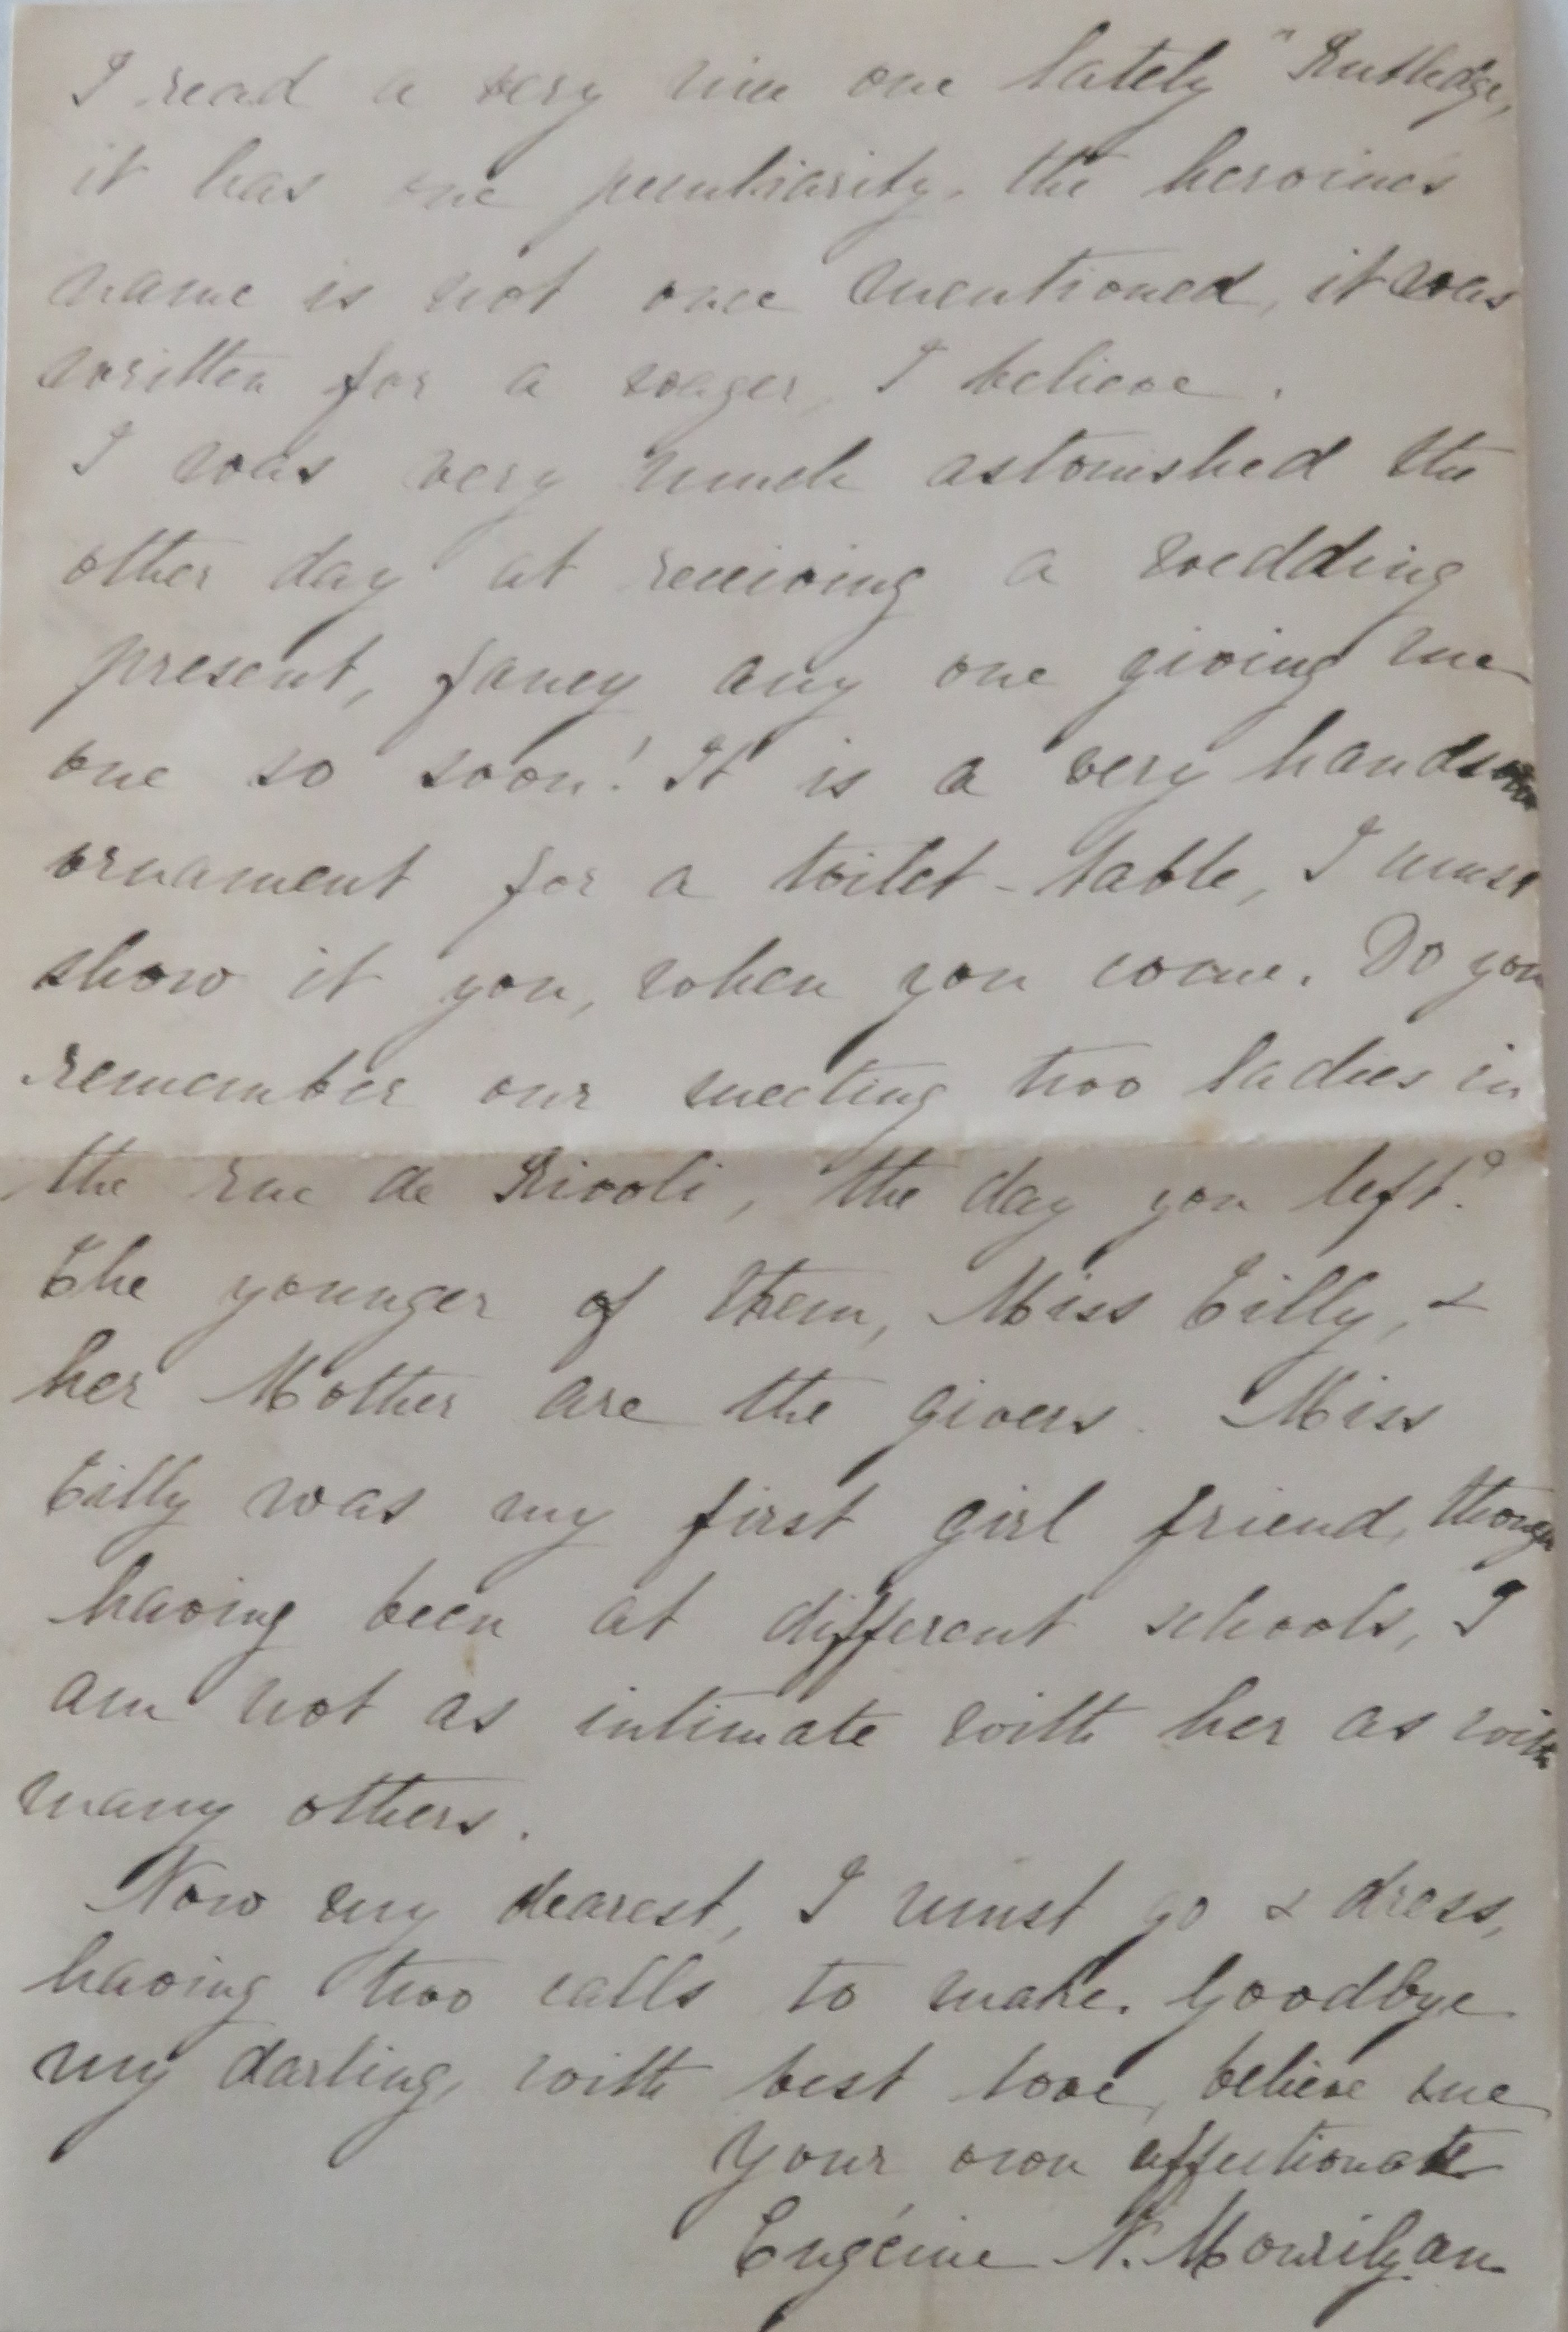 I read a very nice one lately "Rutledge,
it has one peculiarity, the heroines
name is not once mentioned, it was
written for a wager, I believe.
I was very much astonished the
other day at receiving a wedding
present, fancy any one giving me
one so soon! It is a very handsome
ornament for a toilet-table, I must
show it you, when you come. Do you
remember our meeting two ladies in
the rue de Rivoli, the day you left?
The younger of them, Miss Tilly, &
her Mother are the givers. Miss
Tilly was my first girl friend, though
having been at different schools, I
am not as intimate with her as with
many others.
Now my dearest, I must go & dress,
having two calls to make. Goodbye
my darling, with best love, believe me
Your own affectionate
Eugénie N. Mourilyan